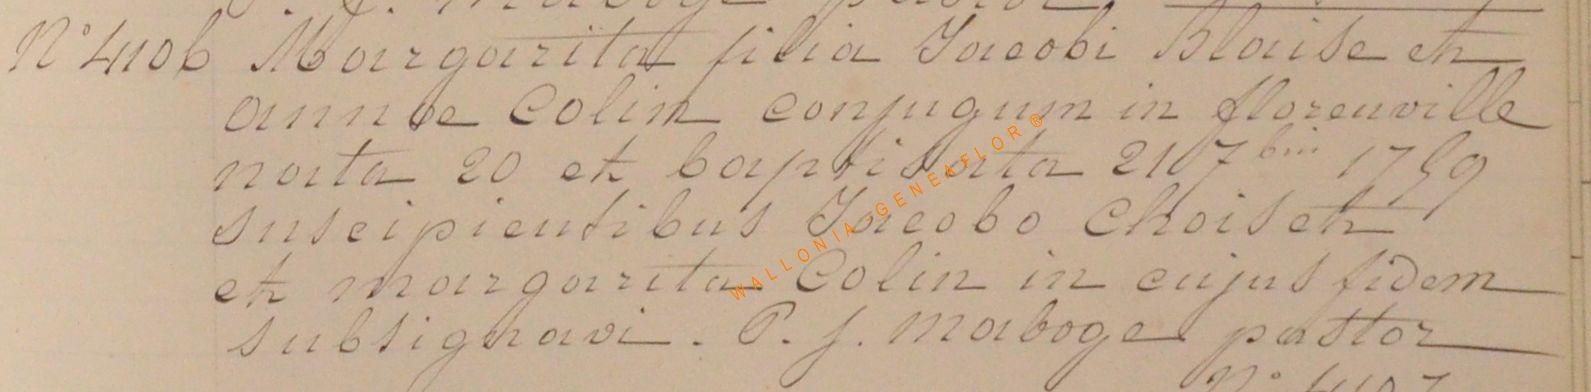 P. J. Maboge pastor
N° 4106 Margarita filia Jacobi Blaise et
annæ Colin conjugum in florenville
nata 20 et baptisata 21 7bris 1759
suscipientibus Jacobo Choiset
et margarita Colin in cujus fidem
subsignavi. P. J. Maboge pastor
N° 4107
WALLONIA-GENEAFLOR ©